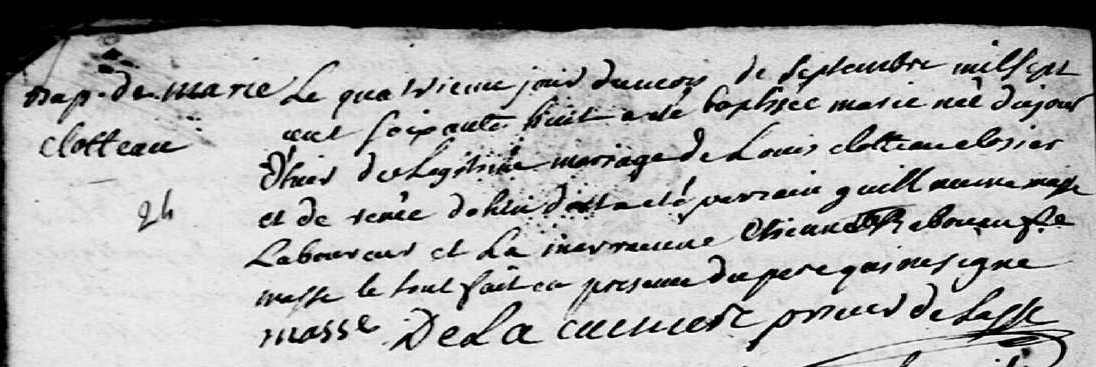 Bap. de marie
clotteau
Le quatrieme jour du mois de septembre mil sept
cent soixante huit a eté baptisée marie née du jour
d'hier du legitime mariage de Louis clotteau closier
et de renée dohin dont a eté parrain guillaume masse
Laboureur et La marraine Etiennette Reboueau fe
masse le tout fait en presence du pere qui ne signe
masse De La prieur de Lasse